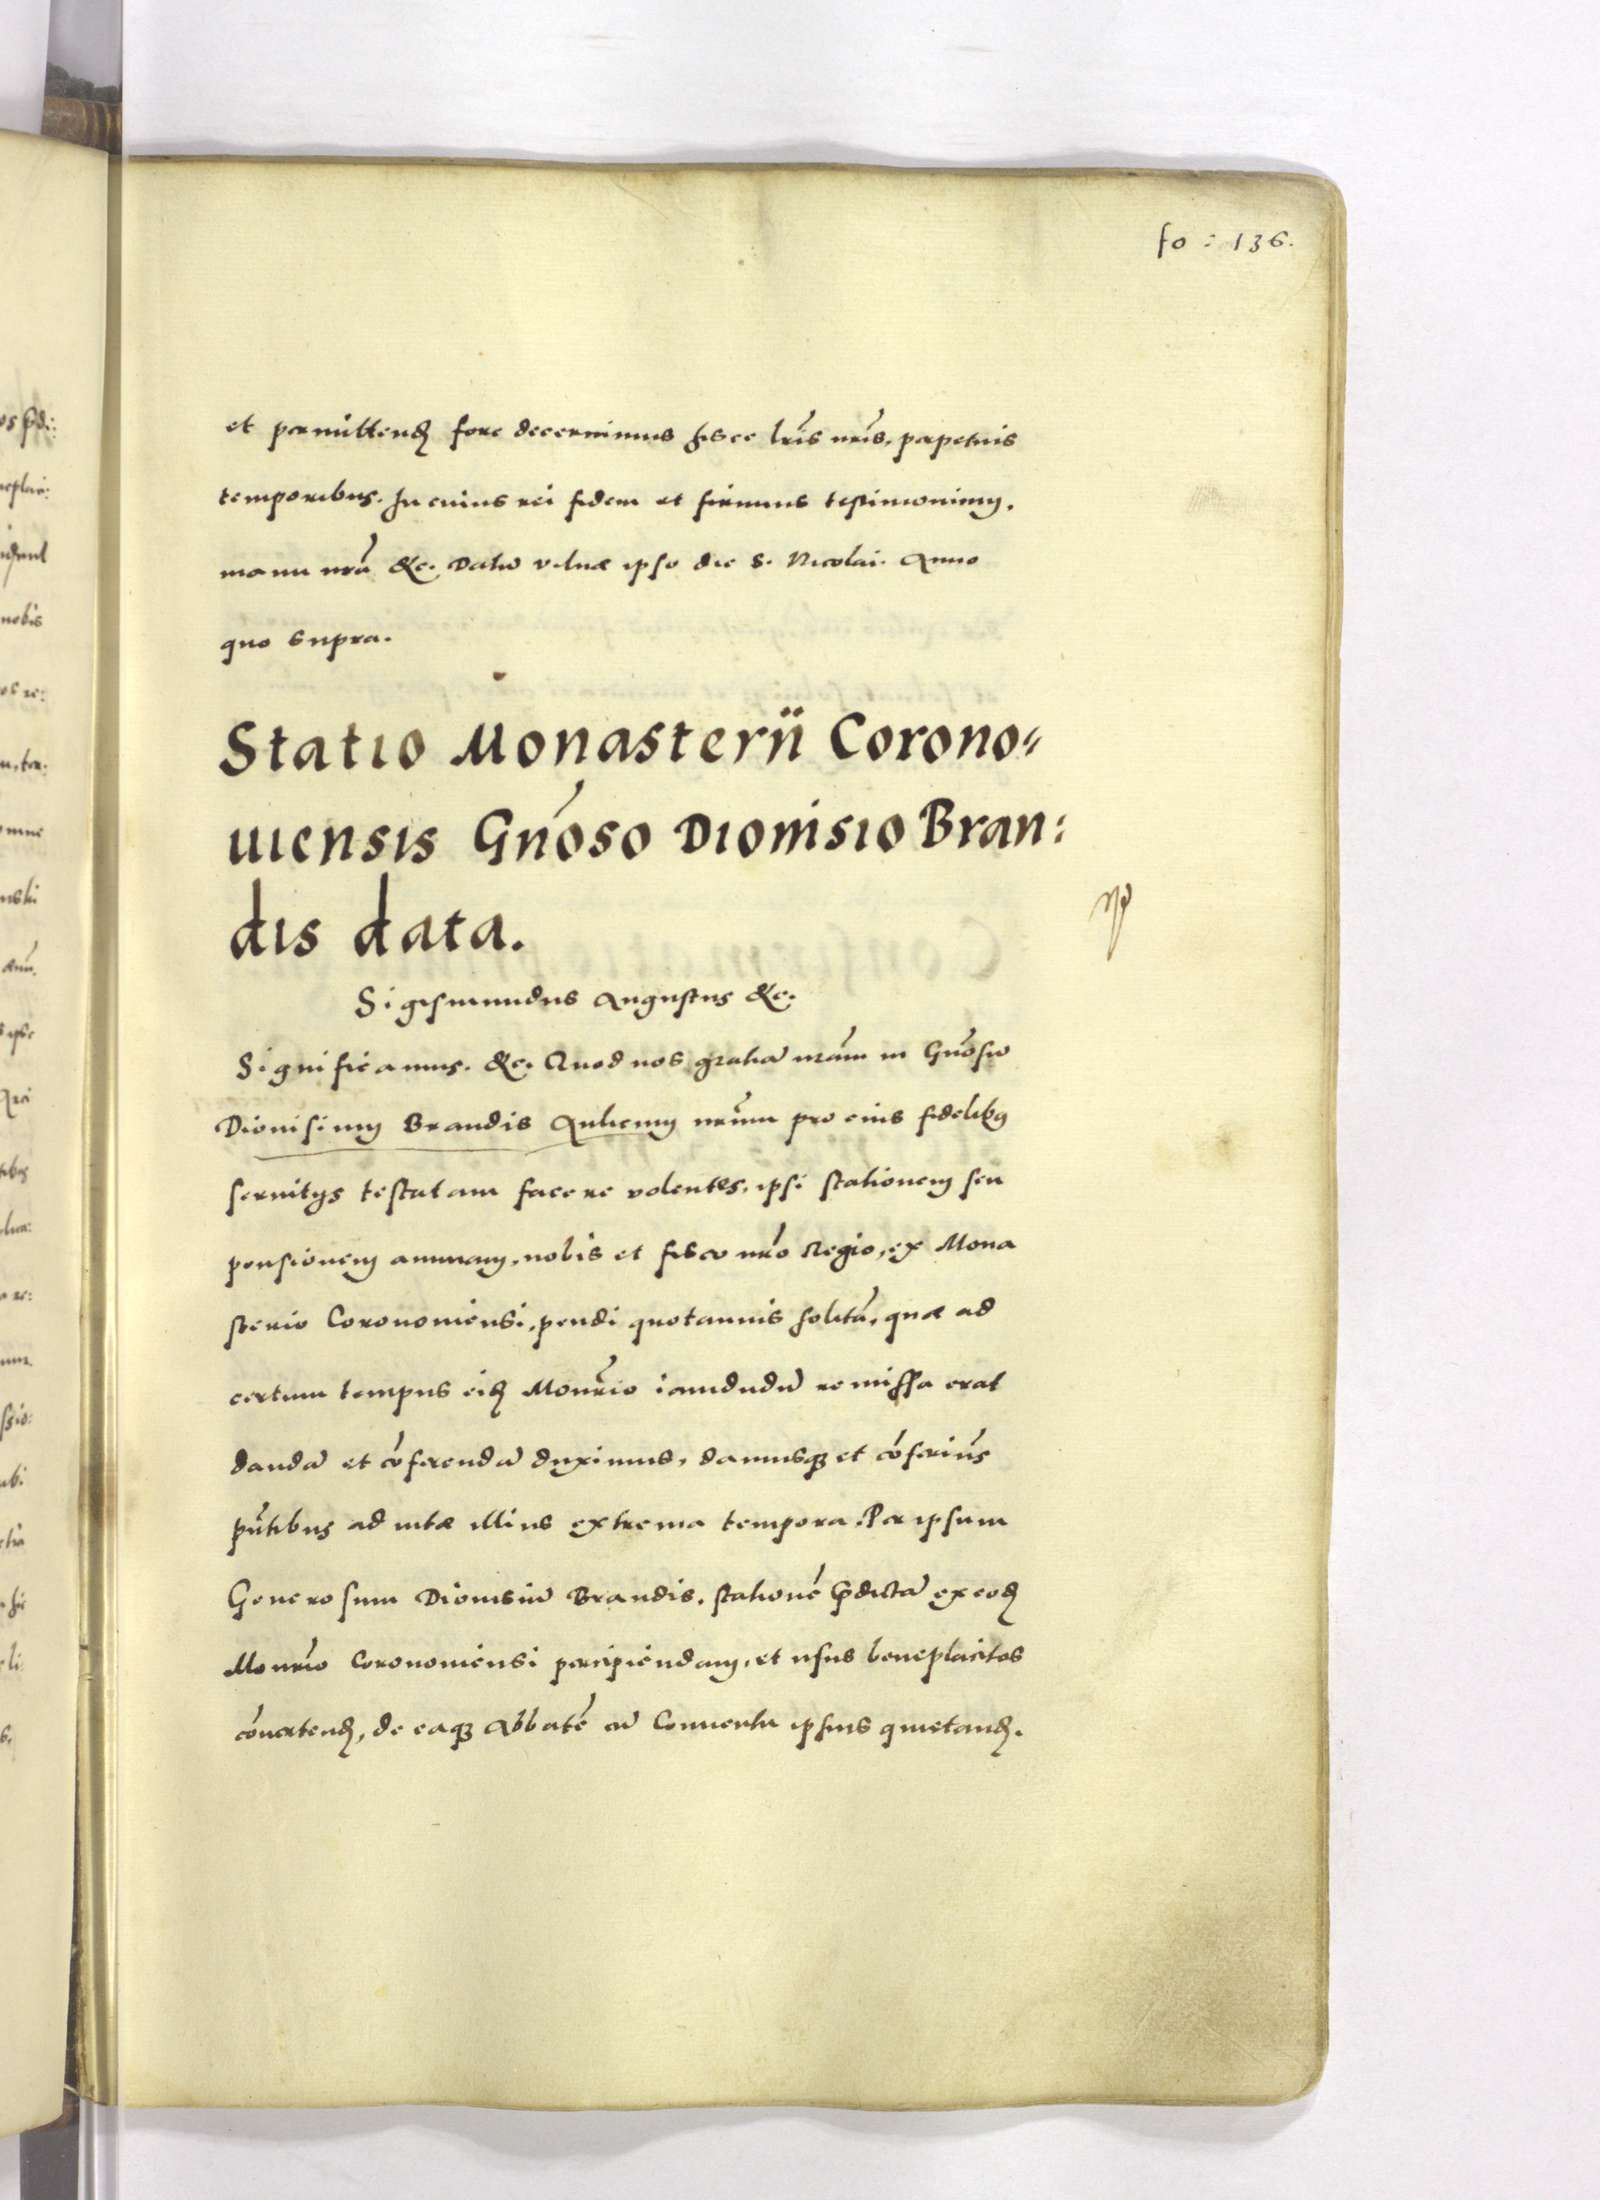 fo : 136.
et permittend fore decernimus hisce lr̃is nr̃is, perpetuis
temporibus. In cuius rei fidem et firmius testimonium,
manu nr̃a &c. Datũ vilnæ ipso die S. Nicolai. Anno
quo supra.
Statio Monasterÿ Corono=
uiensis Gño̅so Dionisio Bran:
dis data.
Sigismundus Augustus &c.
Significamus. &c. Quod nos gratiã nr̃am in Gño̅sũ
Dionisium Brandis Aulicum nr̃um pro eius fidelibus
seruitijs testatam facere volentes, ipsi stationem seu
pensionem annuam, nobis et fisco nr̃o Regio, ex Mona
sterio Coronouiensi, pendi quotannis solitã, quæ ad
certum tempus eid Monr̃io iamdudũ remissa erat
dandã et cõferendã duximus, damusq; et cõferim̃s
pñtibus ad uitæ illius extrema tempora. Per ipsum
Generosum Dionisiũ Brandis, stationẽ p̃dictã ex eod
Monr̃io Coronouiensi percipiendam, et usus beneplacitos
cõuertend, de eaq; Abbatẽ cũ Conuentu ipsius quietand.